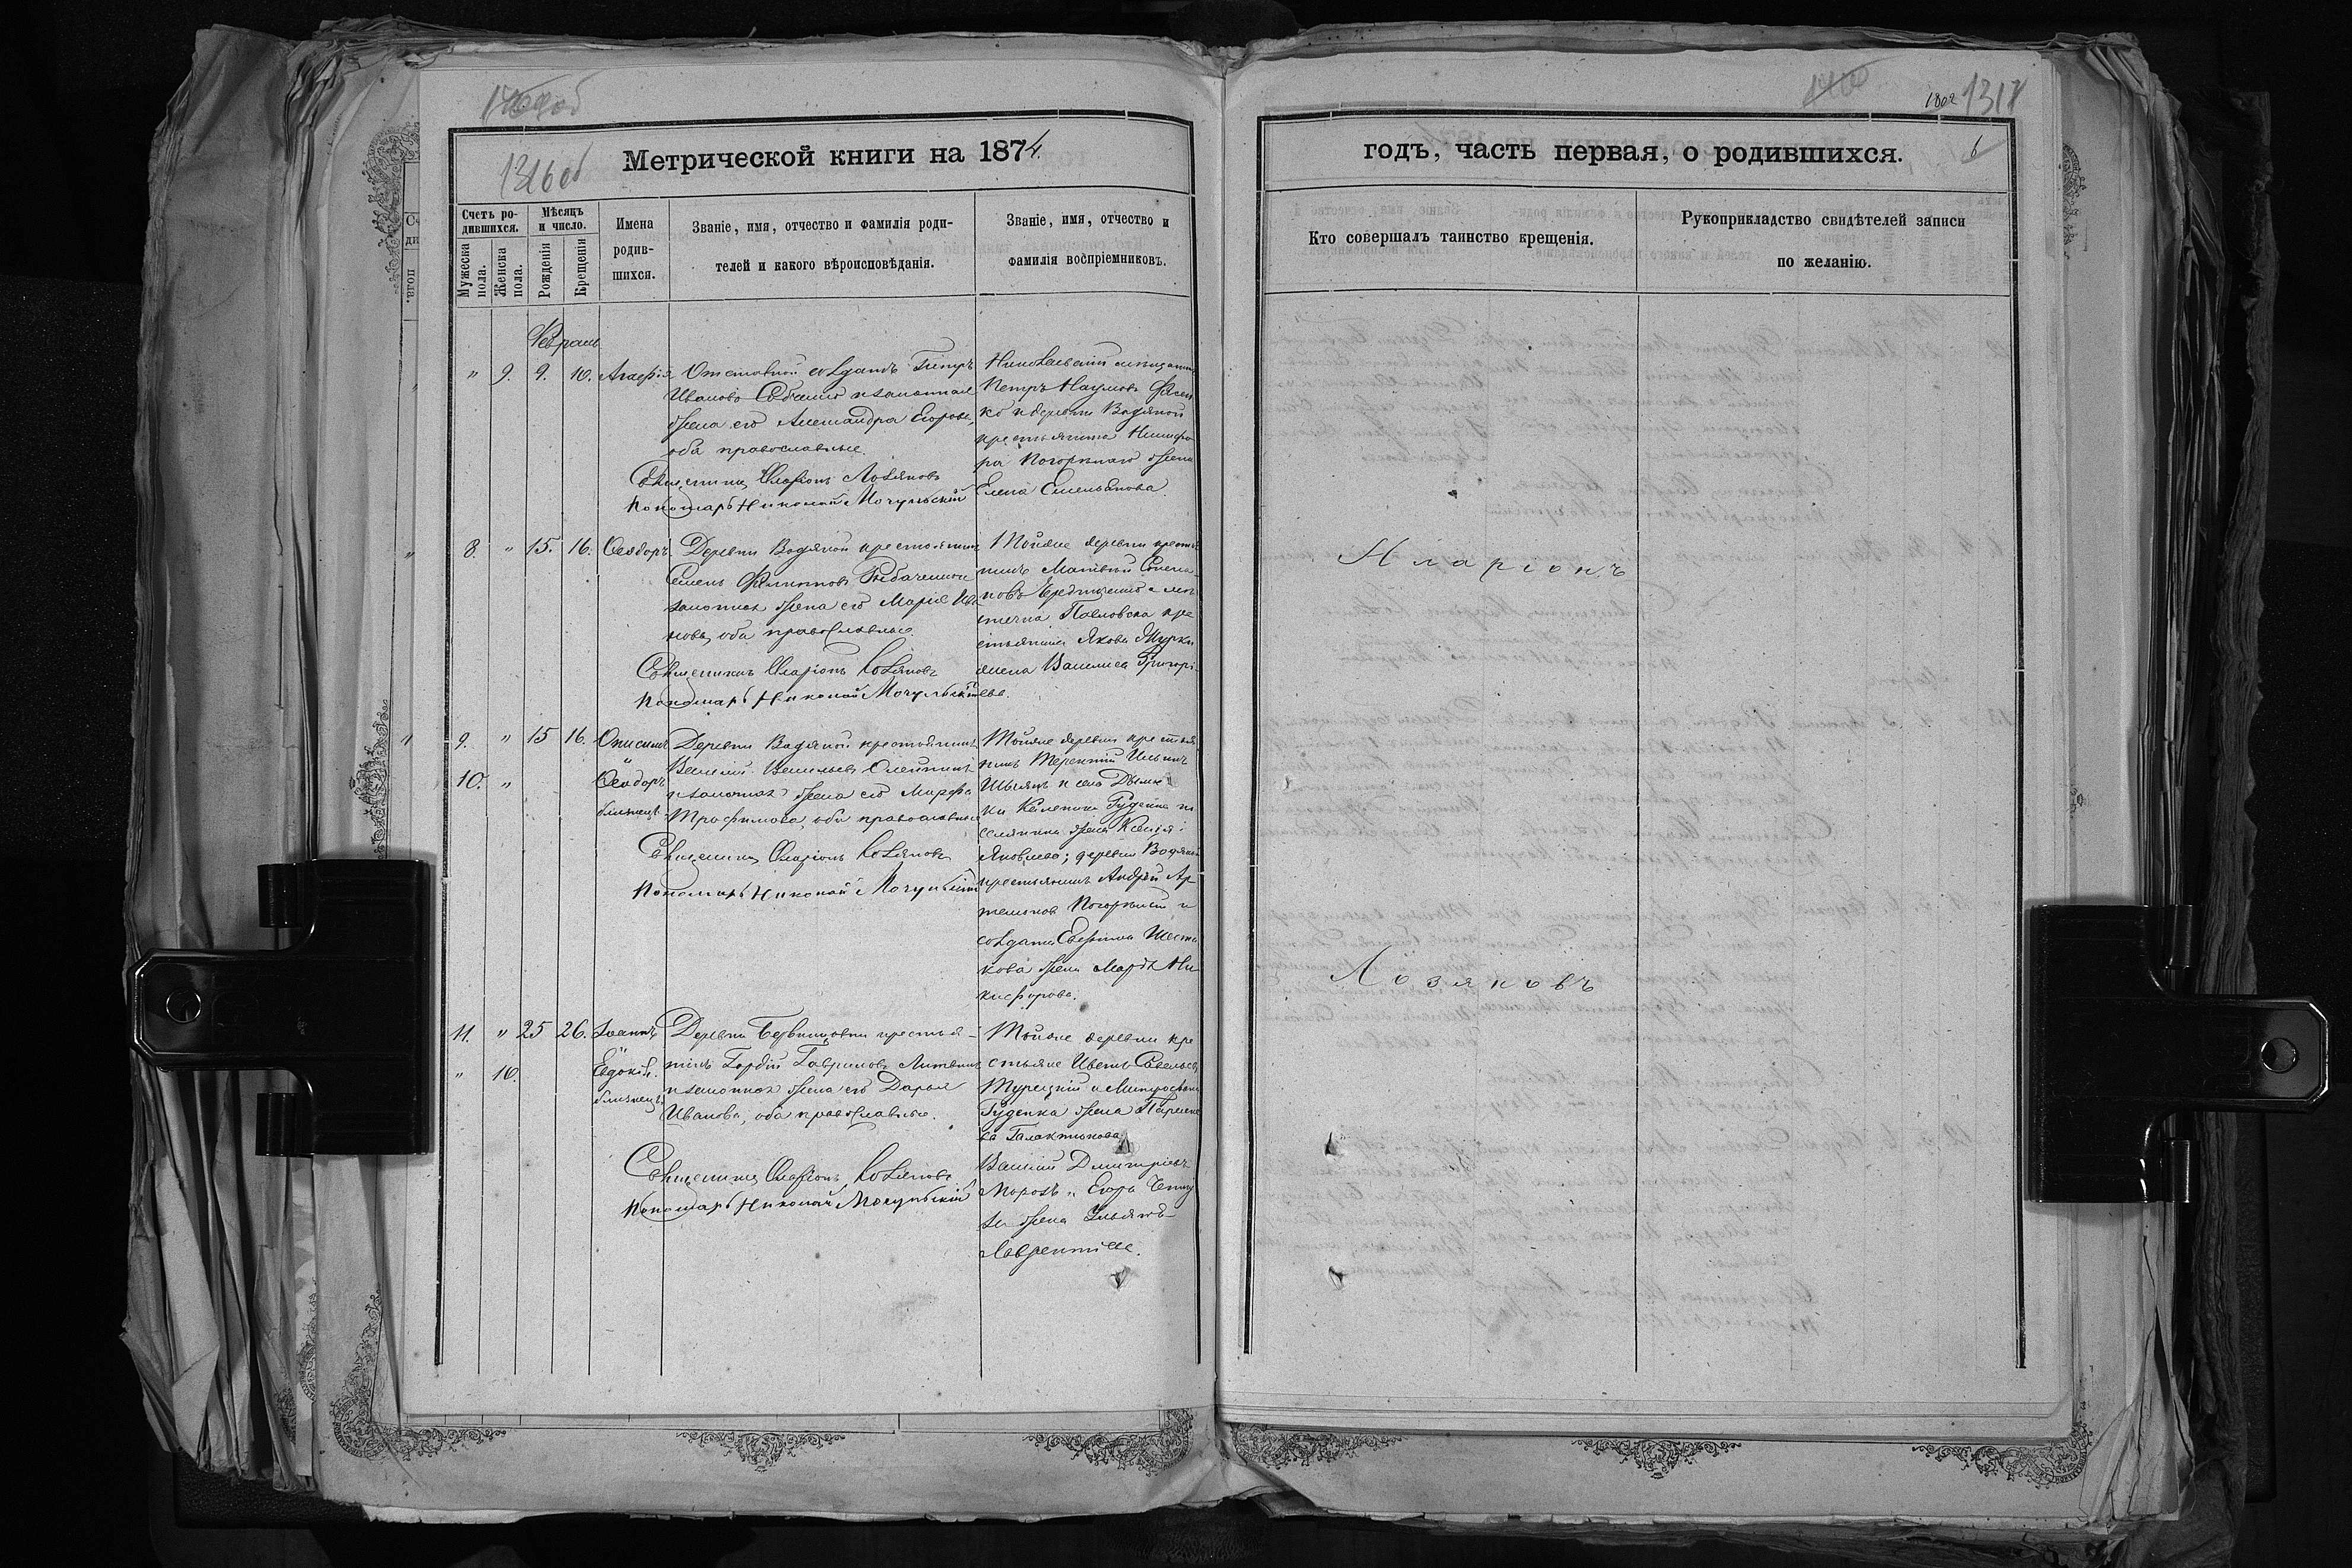 1316 об
Метрической книги на 1874.
Счетъ ро-
дившихся.
Мужеска пола.
Женска пола.
Мѣсяцъ
и число.
Рожденія
Крещенія
Имена
родив-
шихся.
Званіе, имя, отчество и фамилія роди-
телей и какого вѣроисповѣданія.
Званіе, имя, отчество и
фамилія воспріемниковъ.
Февраль
" 9. 9. 10. Агафія
Отставной солдатъ
Иванова и законная
жена его Александра Егорова,
оба православные.
Священникъ Иларіонъ Лозяновъ
Пономарь Николай Мочульскій
Петръ Наумовъ
ко и деревни Водяной
крестьянина Никифо
ра Погорѣлаго жена
Елена Емельянова.
8. " 15. 16. Ѳеодоръ
Деревни Водяной крестьянинъ
Семенъ Филиповъ
законная жена его Марія Ива
нова, оба православные.
Священникъ Иларіонъ Лозяновъ
Пономарь Николай Мочульскій
Тойже деревни кресть
нинъ Матвѣй Семе
новъ
Павловска кре
стьянина Якова
жена Василиса Григорі
ева.
9. " 15 16. Онисимъ
10. " Ѳеодоръ
близнецы
Деревни Водяной крестьянинъ
Василій Васильевъ Олейникъ
и законная жена его Марфа
Трофимова, оба православные
Священникъ Иларіонъ Лозяновъ
Пономарь Николай Мочульскій
Тойже деревни крестья
нинъ Терентій Ильинъ
и села
Гуденка по
селянина жена Ксенія
Яковлева; деревни Водяной
крестьянинъ Андрей Ар
темьновъ Погорѣлый и
солдата Шеста
кова жена Марѳа Ни
кифорова.
11. " 25 26. Іоаннъ
" 10. Евдокія.
близнецы
Деревни крестья-
нинъ Гордій Гавриловъ Литвинъ
и законная жена его Дарья
Иванова, оба православные.
Священникъ Иларіонъ Лозяновъ
Пономарь Николай Мочульскій
Тойже деревни кре
стьяне Савельевъ
Турецкій и Митрофана
Гуденка жена
ва Галактіонова
Василій Дмитріевъ
Морозъ и Егора
жена Ульяна
Лаврентіева.
1802 1317
6
годъ, часть первая, о родившихся.
Кто совершалъ таинство крещенія.
Рукоприкладство свидѣтелей записи
по желанію.
Иларіонъ
Лозяновъ